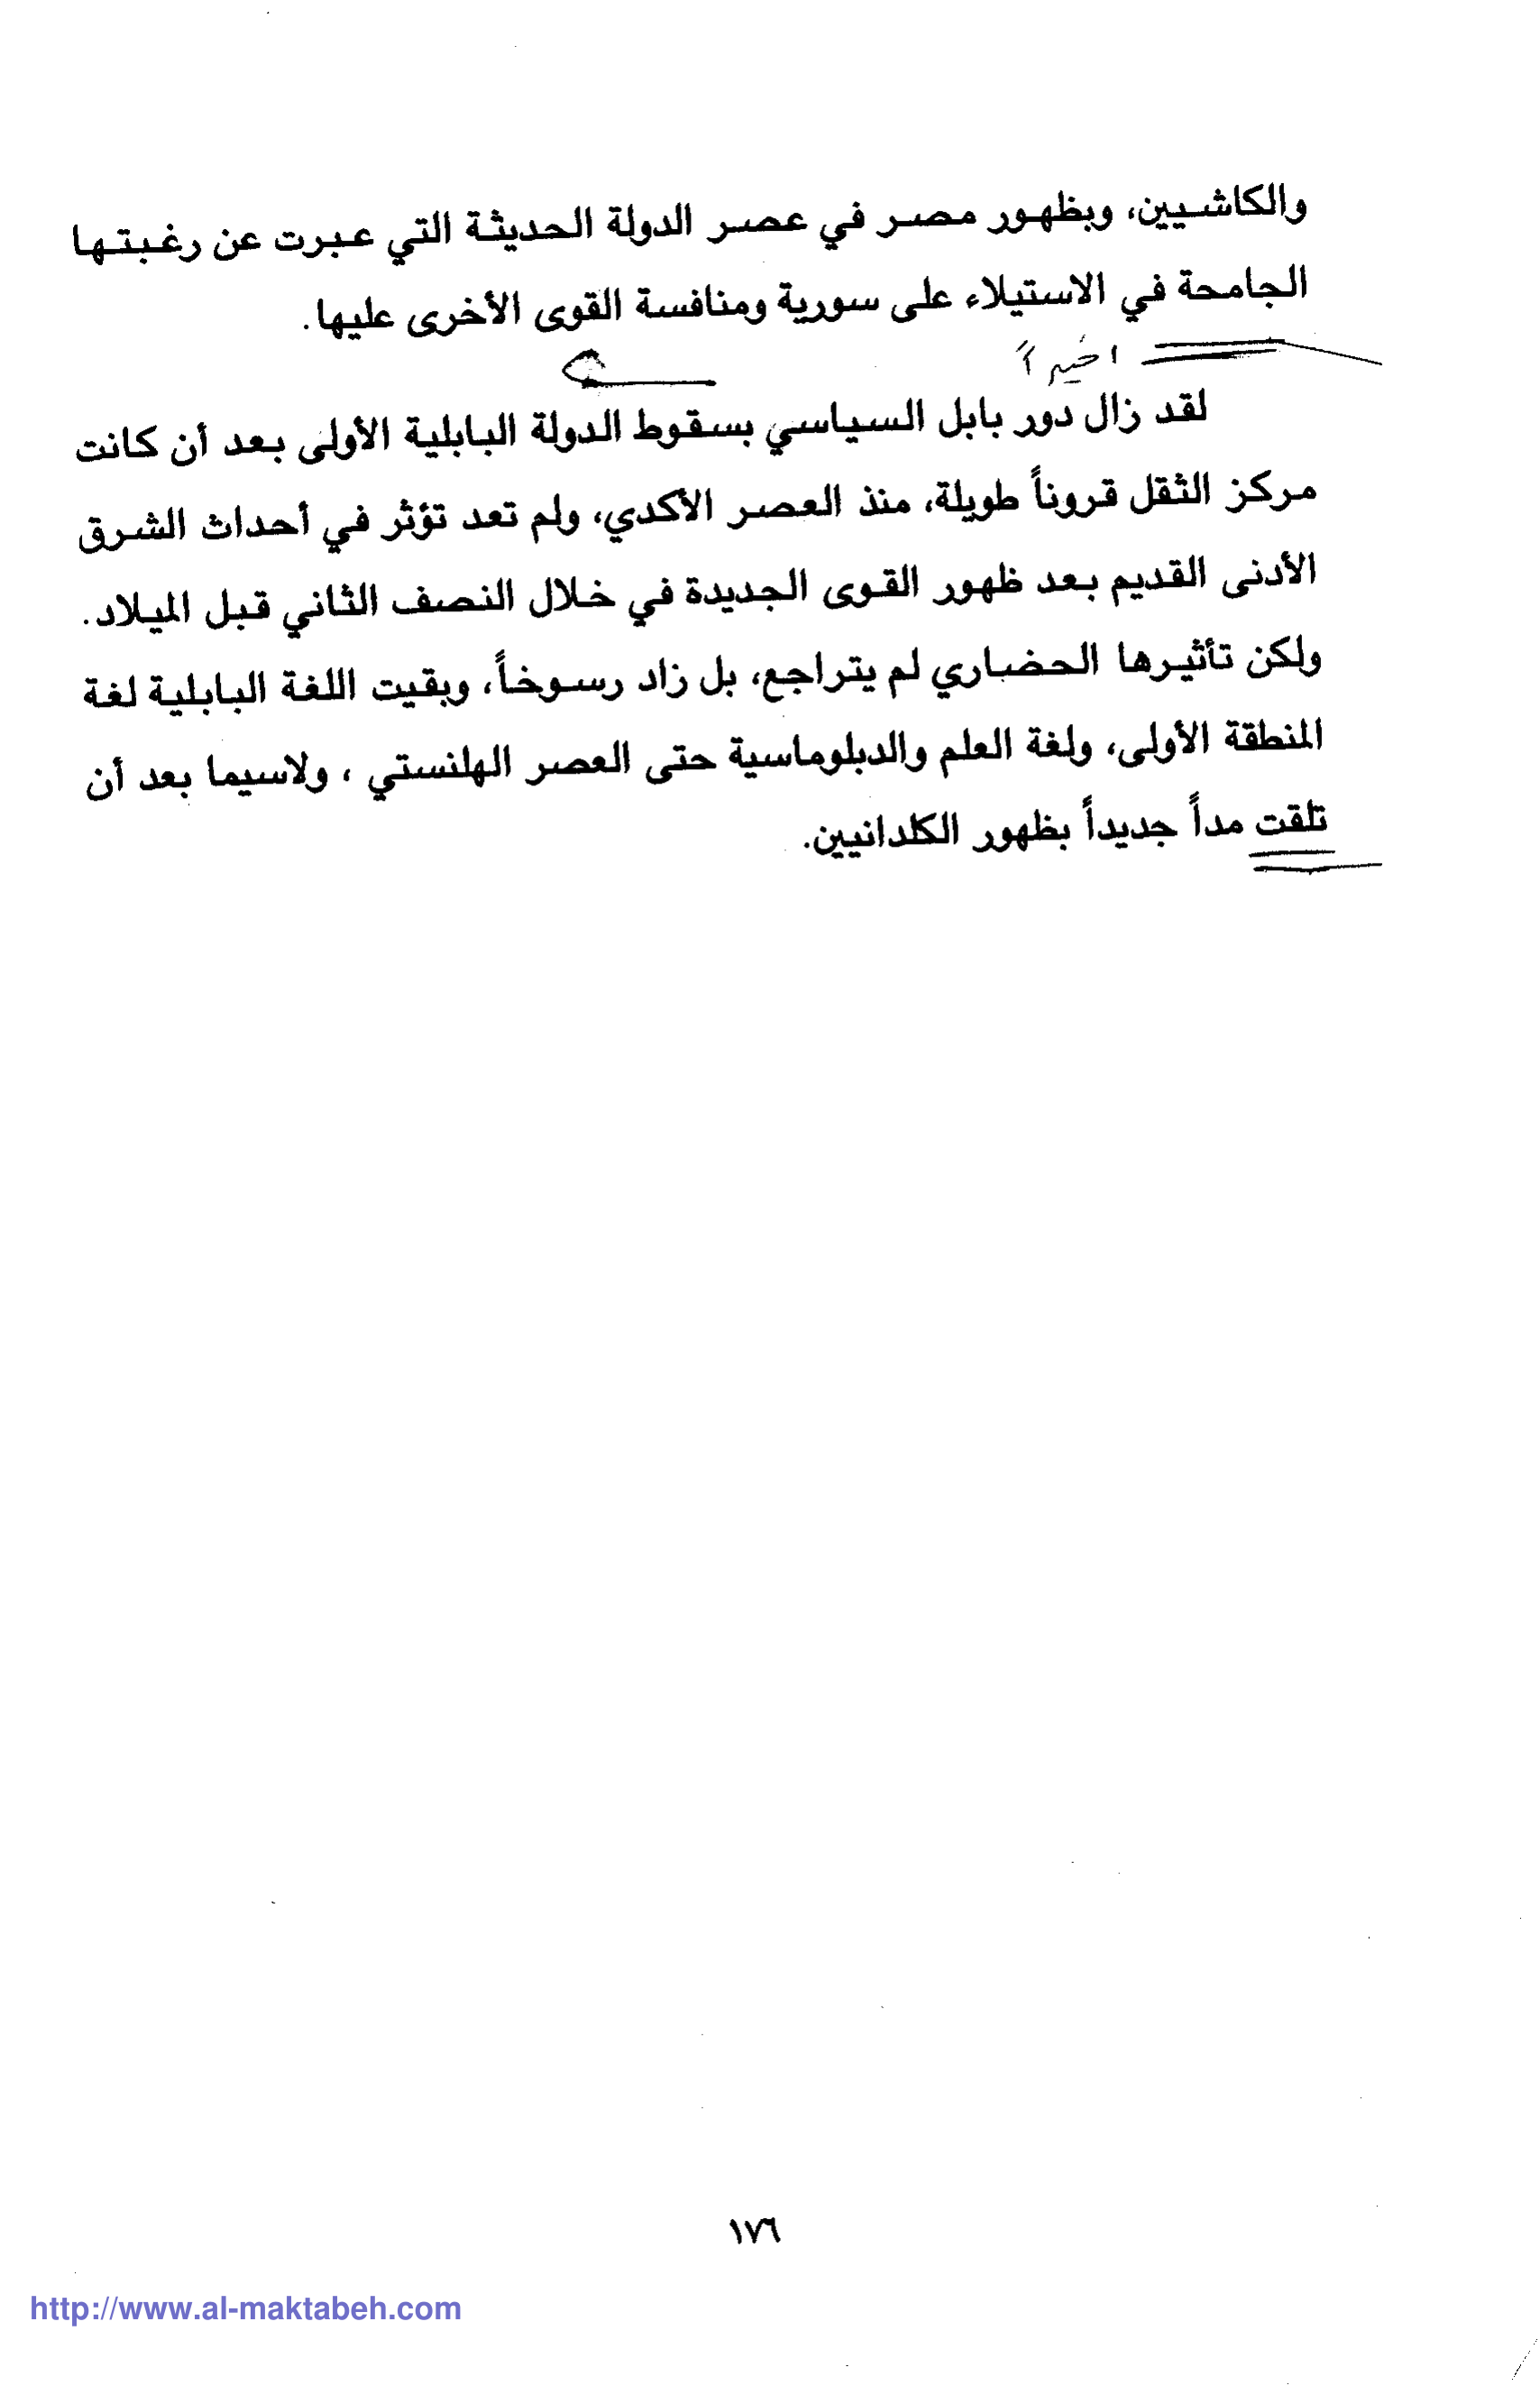 والكاشيين، وبظهور مصر في عصر الدولة الحديثة التي عبرت عن رغبتها
الجامحة في الاستيلاء على سورية ومنافسة القوى الأخرى عليها.
اخيراً
لقد زال دور بابل السياسي بسقوط الدولة البابلية الأولى بعد أن كانت
مركز الثقل قروناً طويلة، منذ العصر الأكدي، ولم تعد تؤثر في أحداث الشرق
الأدنى القديم بعد ظهور القوى الجديدة في خلال النصف الثاني قبل الميلاد.
ولكن تأثيرها الحضاري لم يتراجع، بل زاد رسوخاً، وبقيت اللغة البابلية لغة
المنطقة الأولى، ولغة العلم والدبلوماسية حتى العصر الهلنستي ، ولاسيما بعد أن
تلقت مداً جديداً بظهور الكلدانيين.
١٧٦
http://www.al-maktabeh.com